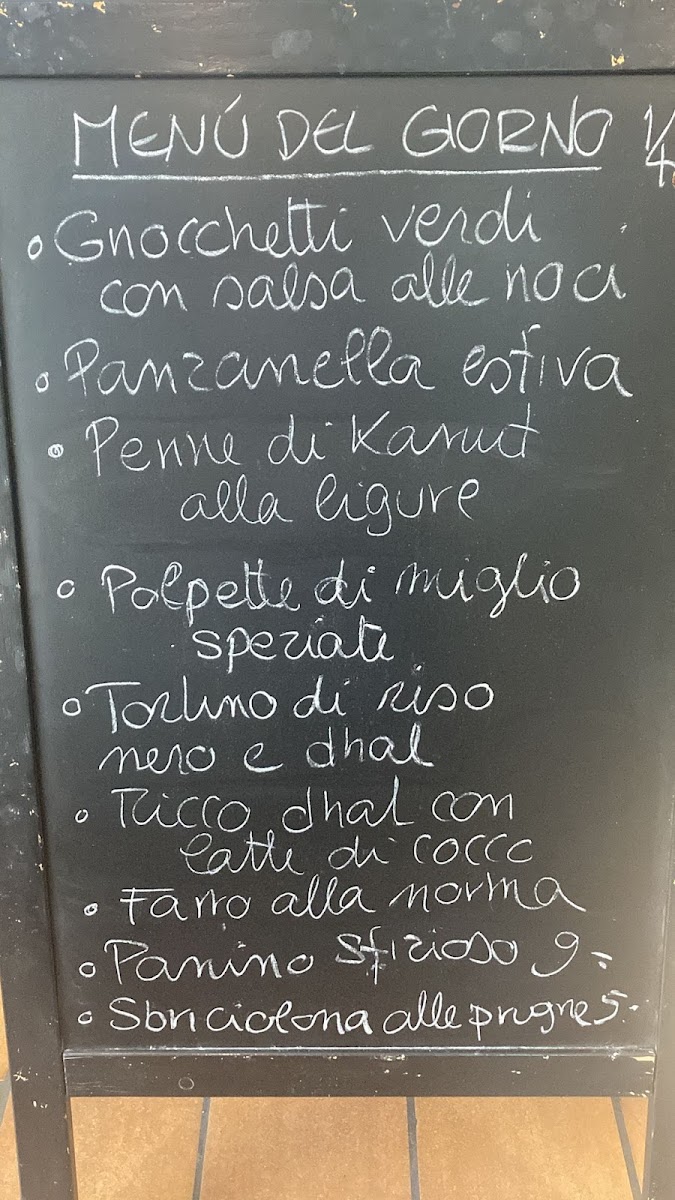 MENÚ DEL GIORNO
Gnocchetti verdi
con salsa alle noci
Panzanella estiva
Penne di Kamut
alla ligure
Polpette di miglio
speziate
Tortino di riso
nero e dhal
Ricco dhal con
latte di cocco
Farro alla norma
Panino sfizioso 9.-
Sbriciolona alle prugne 5.-